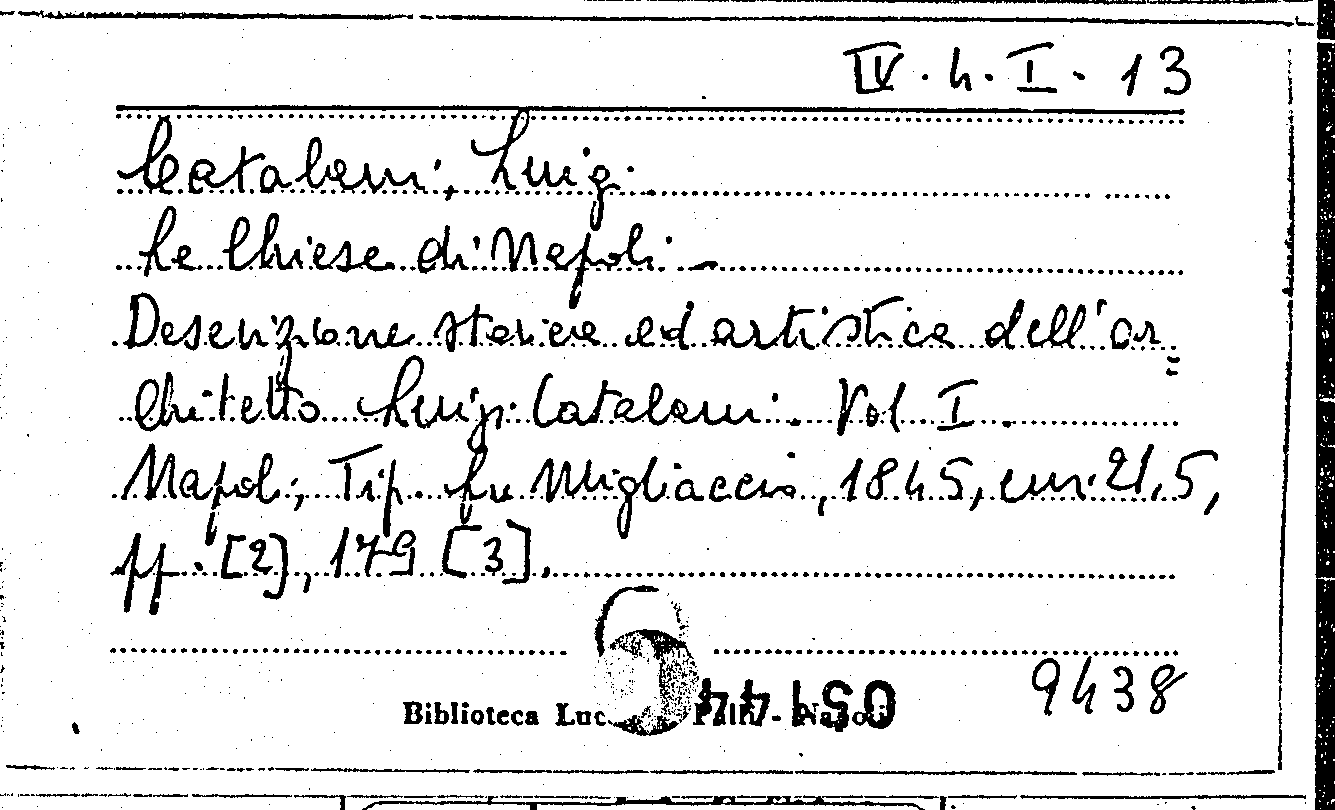 IV. h. I. 13
Catalani, Luigi.
Le Chiese di Napoli. -
Descrizione storica ed artistica dell'ar=
chitetto Luigi Catalani. Vol I.
Napoli, Tip. fu Migliaccio, 1845, cm. 21,5,
pp. [2], 179 [3].
9438
Biblioteca Luc - Napoli